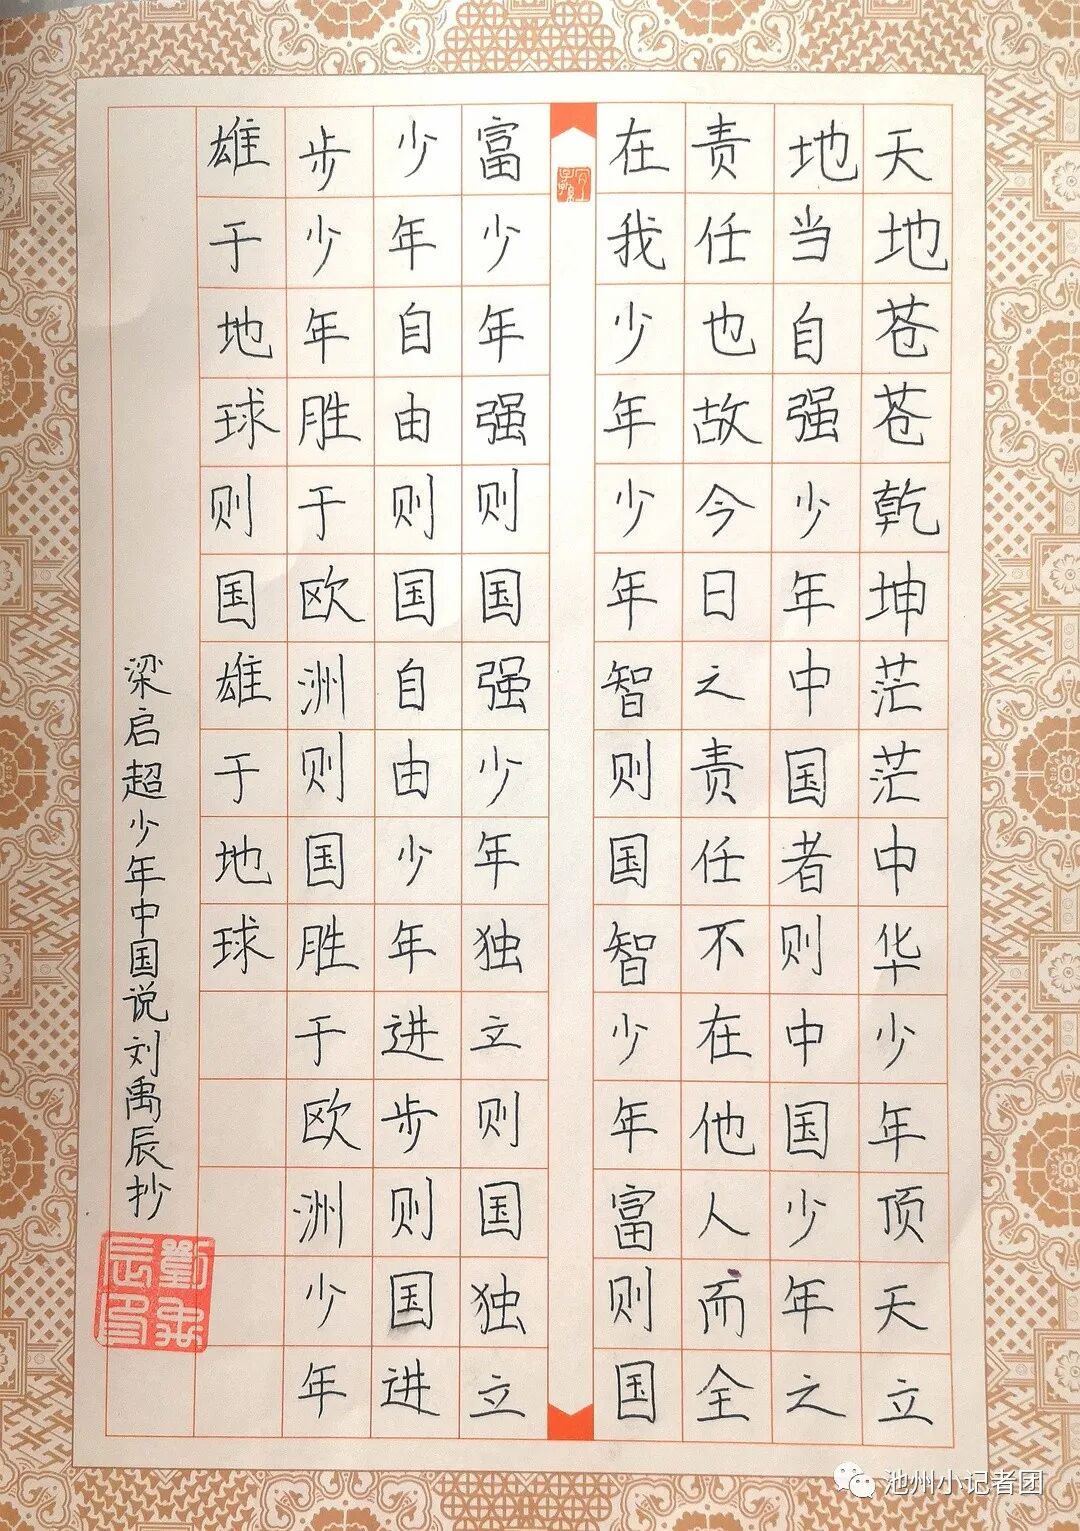 天地苍苍乾坤茫茫中华少年顶天立
地当自强少年中国者则中国少年之
责任也故今日之责任不在他人而全
在我少年少年智则国智少年富则国
富少年强则国强少年独立则国独立
少年自由则国自由少年进步则国进
步少年胜于欧洲则国胜于欧洲少年
雄于地球则国雄于地球
梁启超少年中国说刘禹辰抄
池州小记者团